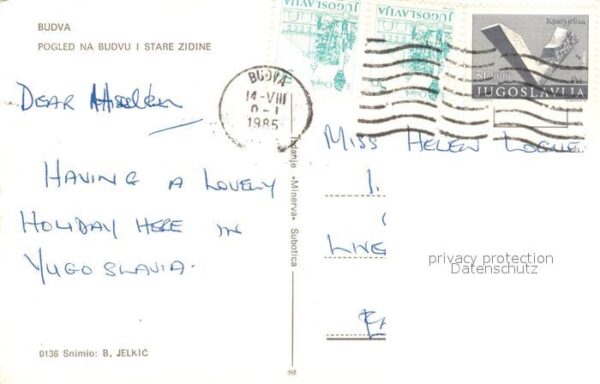 BUDVA
POGLED NA BUDVU I STARE ZIDINE
DEAR Helen
HAVING A LOVELY
HOLIDAY HERE IN
YUGOSLAVIA.
0136 Snimio: B, JELKIĆ
Izdanje »Minerva« Subotica
JUGOSLAVIJA
JUGOSLAVIJA
Крагујевац
JUGOSLAVIJA
BUDVA
14-VIII
1985
MISS HELEN LOGUE.
1.
LIVE
privacy protection
Datenschutz